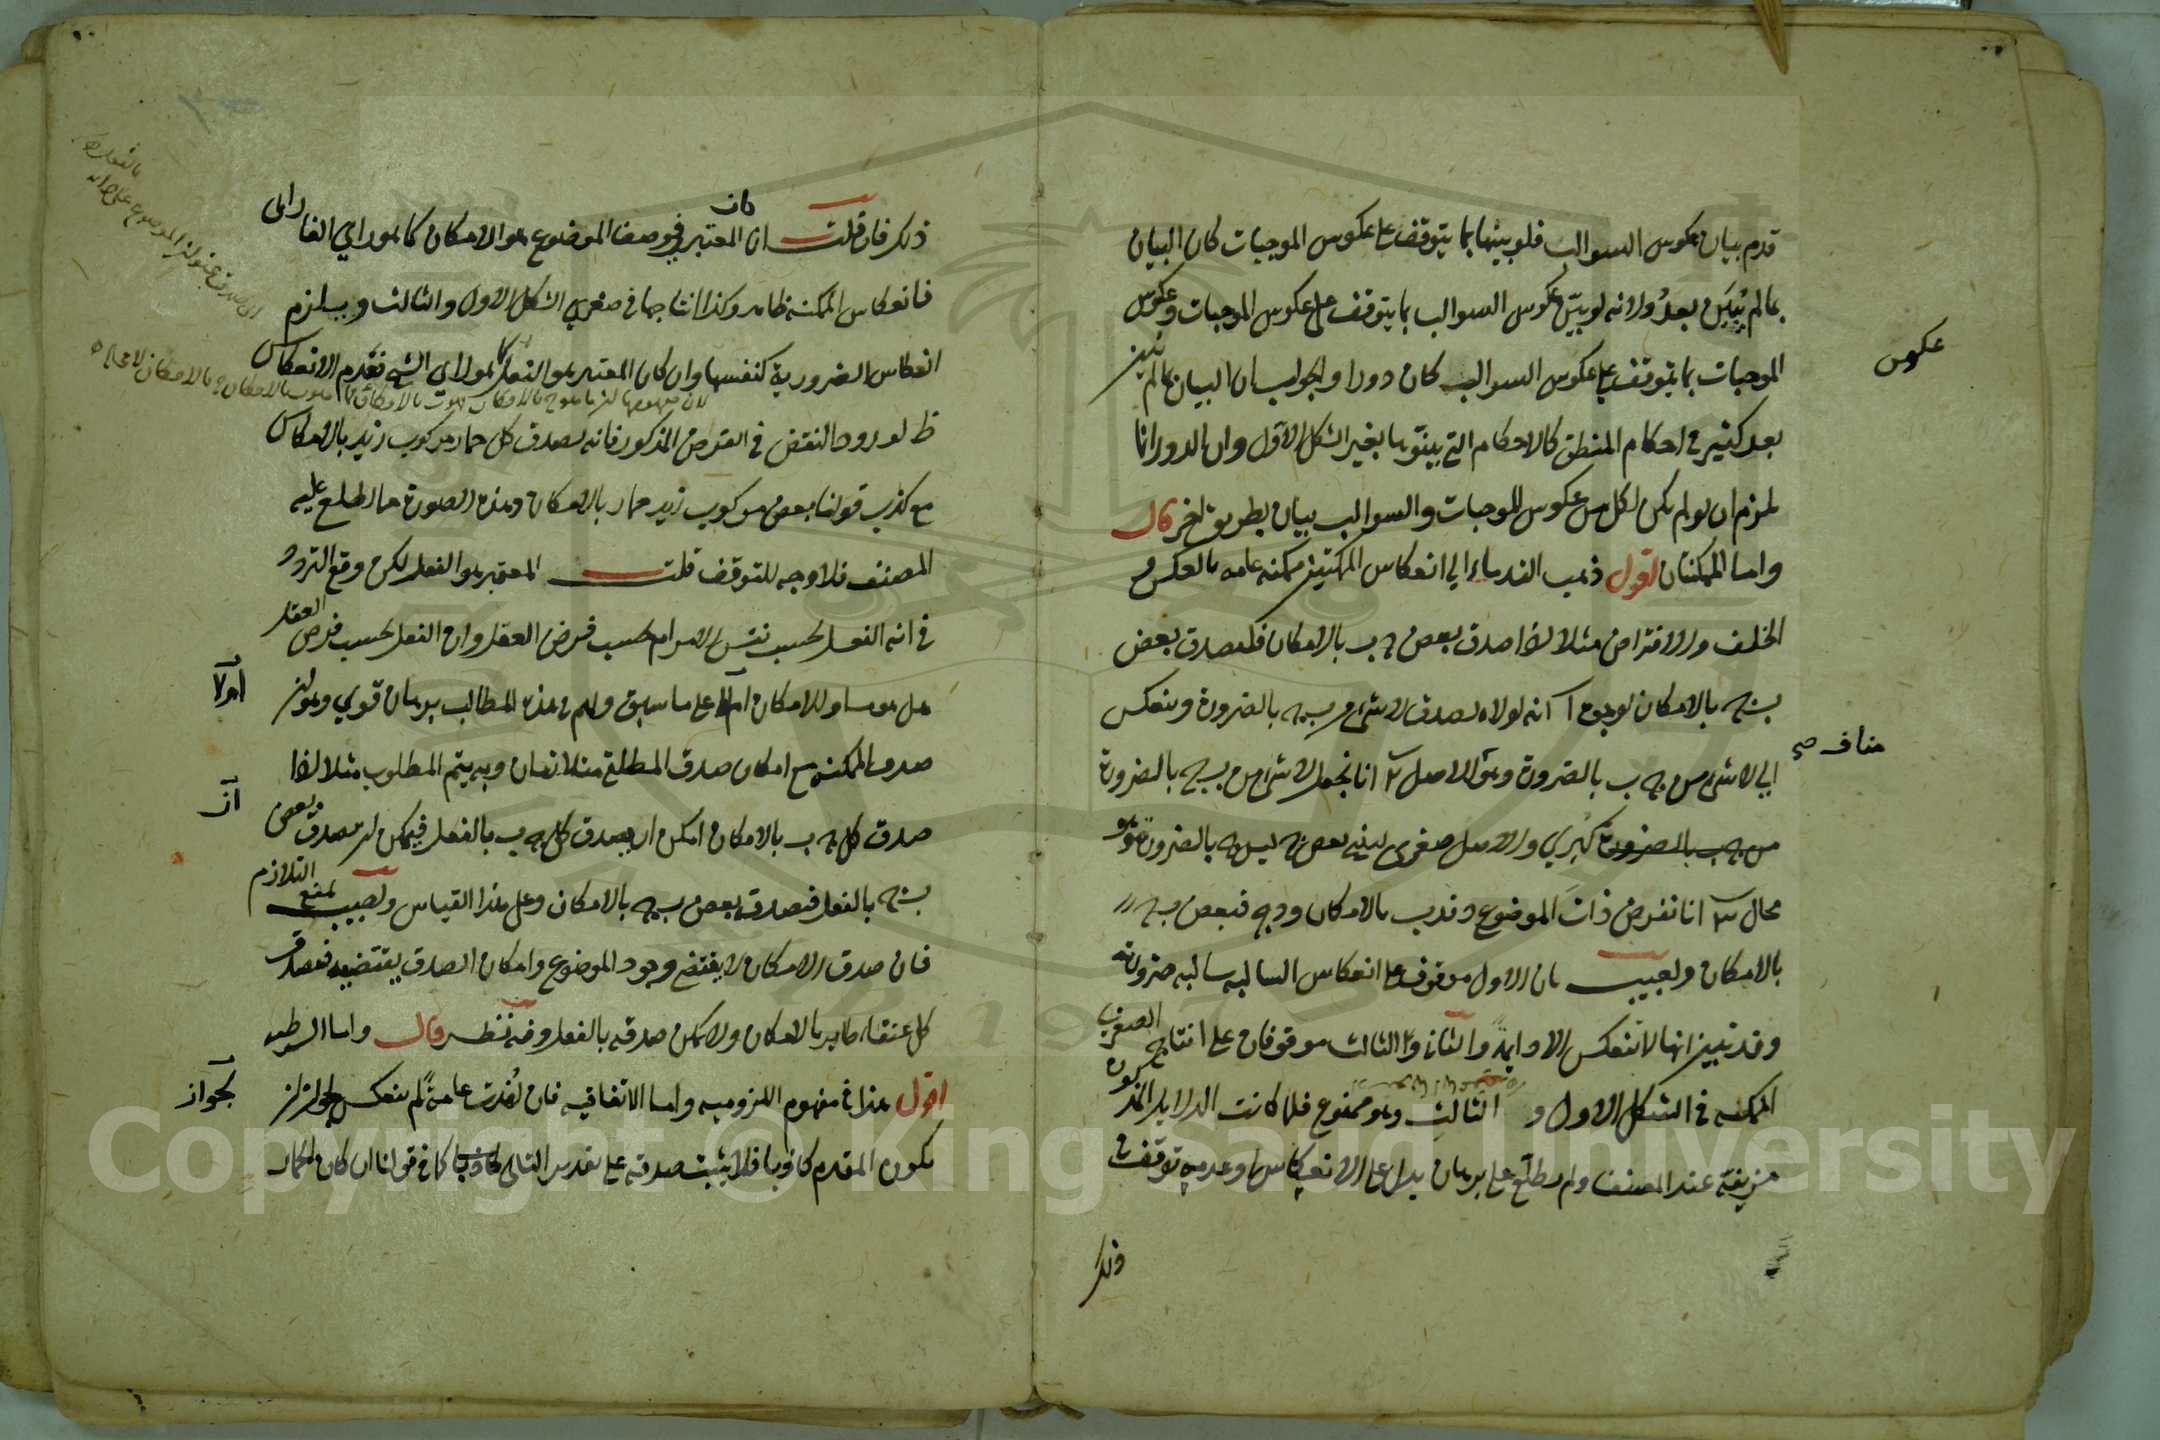 قدم بيان عكوس السوالب فلو بينها بما يتوقف على عكوس الموجبات كان البيان
بما لم يُبيَّن بعدُ ولانه لو بيّن عكوس السوالب بما يتوقف على عكوس الموجبات وعكوس
الموجبات بما يتوقف على عكوس السوالب كان دورا والجواب ان البيان بما لم يبين
بعد كثير في احكام المنطق كالاحكام التي بينوها بغير الشكل الاول وان الدور انما
يلزم ان لو لم يكن لكل من عكوس الموجبات والسوالب بيان بطريق اخر قال
واما الممكنتان اقول ذهب القدماء الي انعكاس الممكنتين ممكنة عامة بالعكس و
الخلف والافتراض مثلا اذا صدق بعض ج ب بالامكان فليصدق بعض
ب ج بالامكان لوجوه آ انه لولاه لصدق لا شئ من ب ج بالضرورة وينعكس
الي لا شئ من ج ب بالضرورة وهو الاصل ب انا نجعل لا شئ من ب ج بالضرورة
من ج ب بالضرورة كبري والاصل صغرى لينتج بعض ج ليس ج بالضرورة وهو
محال ج انا نفرض ذات الموضوع د فد ب بالامكان ود ج فبعض ب ج
بالامكان واجيب بان الاول موقوف على انعكاس السالبة سالبة ضرورية
وقد تبين انها لا تنعكس الا دايمة والثاني والثالث موقوفان على انتاج الصغرى
الممكنة في الشكل الاول و الثالث وهو ممنوع فلما كانت الدلايل المذكورة
مزيفة عند المصنف ولم يطلع على برهان يدل على الانعكاس او عدمه توقف في
ذلك
عكوس
مناف صح
ذلك فان قلت ان المعتبر في وصف الموضوع هو الامكان كما هو راي الفارابي
فانعكاس الممكنة ظاهر وكذا انتاجها في صغري الشكل الاول والثالث ويلزم
انعكاس الضرورية كنفسها وان كان المعتبر هو الفعل كما هو راي الشيخ فعدم الانعكاس
ظ لورود النقض في الفرض المذكور فانه يصدق كل حمار مركوب زيد بالامكان
مع كذب قولنا بعض مركوب زيد حمار بالامكان وهذه الصورة مما اطلع عليه
المصنف فلا وجه للتوقف قلت المعتبر هو الفعل لكن وقع التردد
في انه الفعل بحسب نفس الامر ام بحسب فرض العقل وان الفعل بحسب فرض العقل
هل هو مساو للامكان ام لا على ما سبق ولهم في هذه المطالب برهان قوي وهو ان
صدق الممكنة مع امكان صدق المطلقة متلازمان وبه يتم المطلوب مثلا اذا
صدق كل ج ب بالامكان امكن ان يصدق كل ج ب بالفعل فيمكن ان يصدق بعض
ب ج بالفعل فيصدق بعض ب ج بالامكان وعلى هذا القياس واجيب بمنع التلازم
فان صدق الامكان لا يقتضي وجود الموضوع وامكان الصدق يقتضيه فيصدق
كل عنقاء طاير بالامكان ولا يمكن صدقه بالفعل وفيه نظر قال واما الشرطية
اقول هذا في مفهوم اللزومية واما الاتفاقية فان اُخذت عامة لم تنعكس لجواز ان
يكون المقدم كاذبا فلا يثبت صدقه على تقدير التالي كاذبا كما في قولنا ان كان الحمار
ام لا
ان
لجواز
Copyright © King Saud University